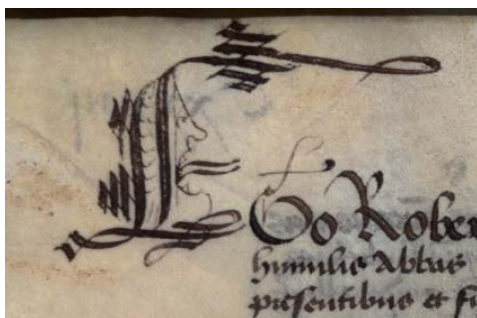 EGo Rober
humilis Abbas
presentibus et fu